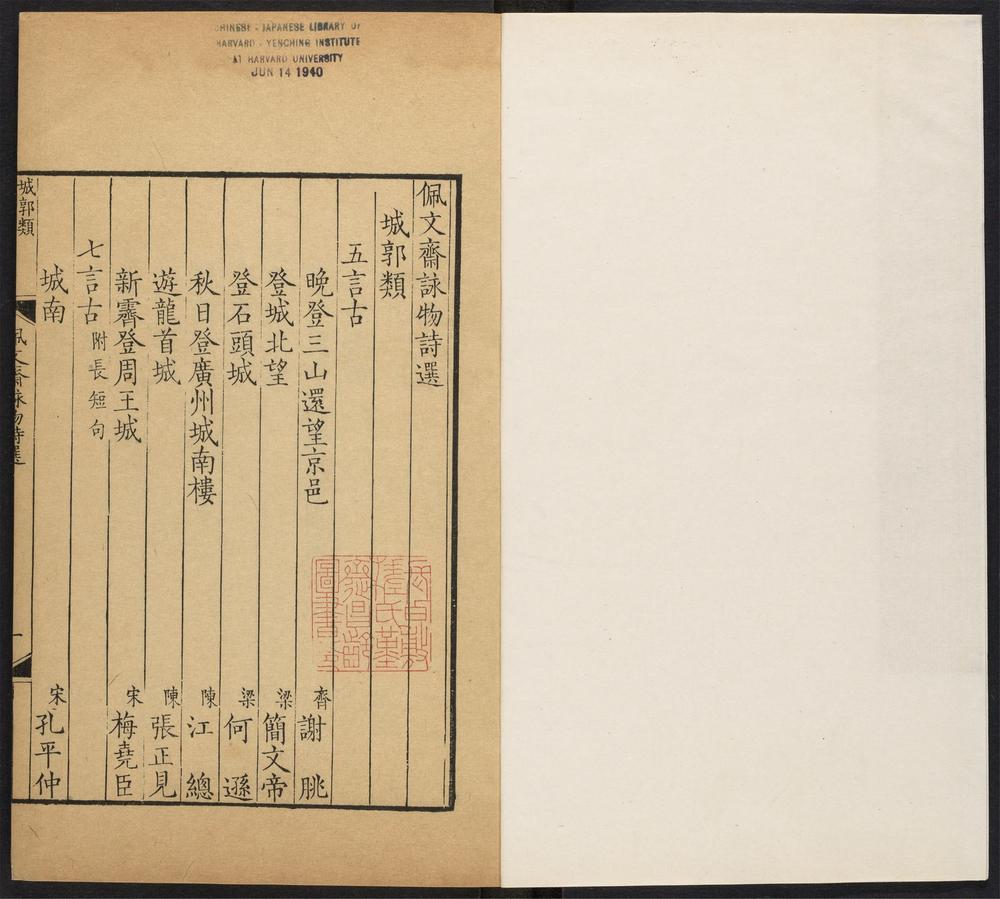 CHINESE - JAPANESE LIBRARY OF
HARVARD - YENCHING INSTITUTE
AT HARVARD UNIVERSITY
JUN 14 1940
佩文齋詠物詩選
城郭類
五言古
晚登三山還望京邑 齊 謝朓
登城北望 梁 簡文帝
登石頭城 梁 何遜
秋日登廣州城南樓 陳 江總
遊龍首城 陳 張正見
新霽登周王城 宋 梅堯臣
七言古 附長短句
城南 宋 孔平仲
城郭類
佩文齋詠物詩選